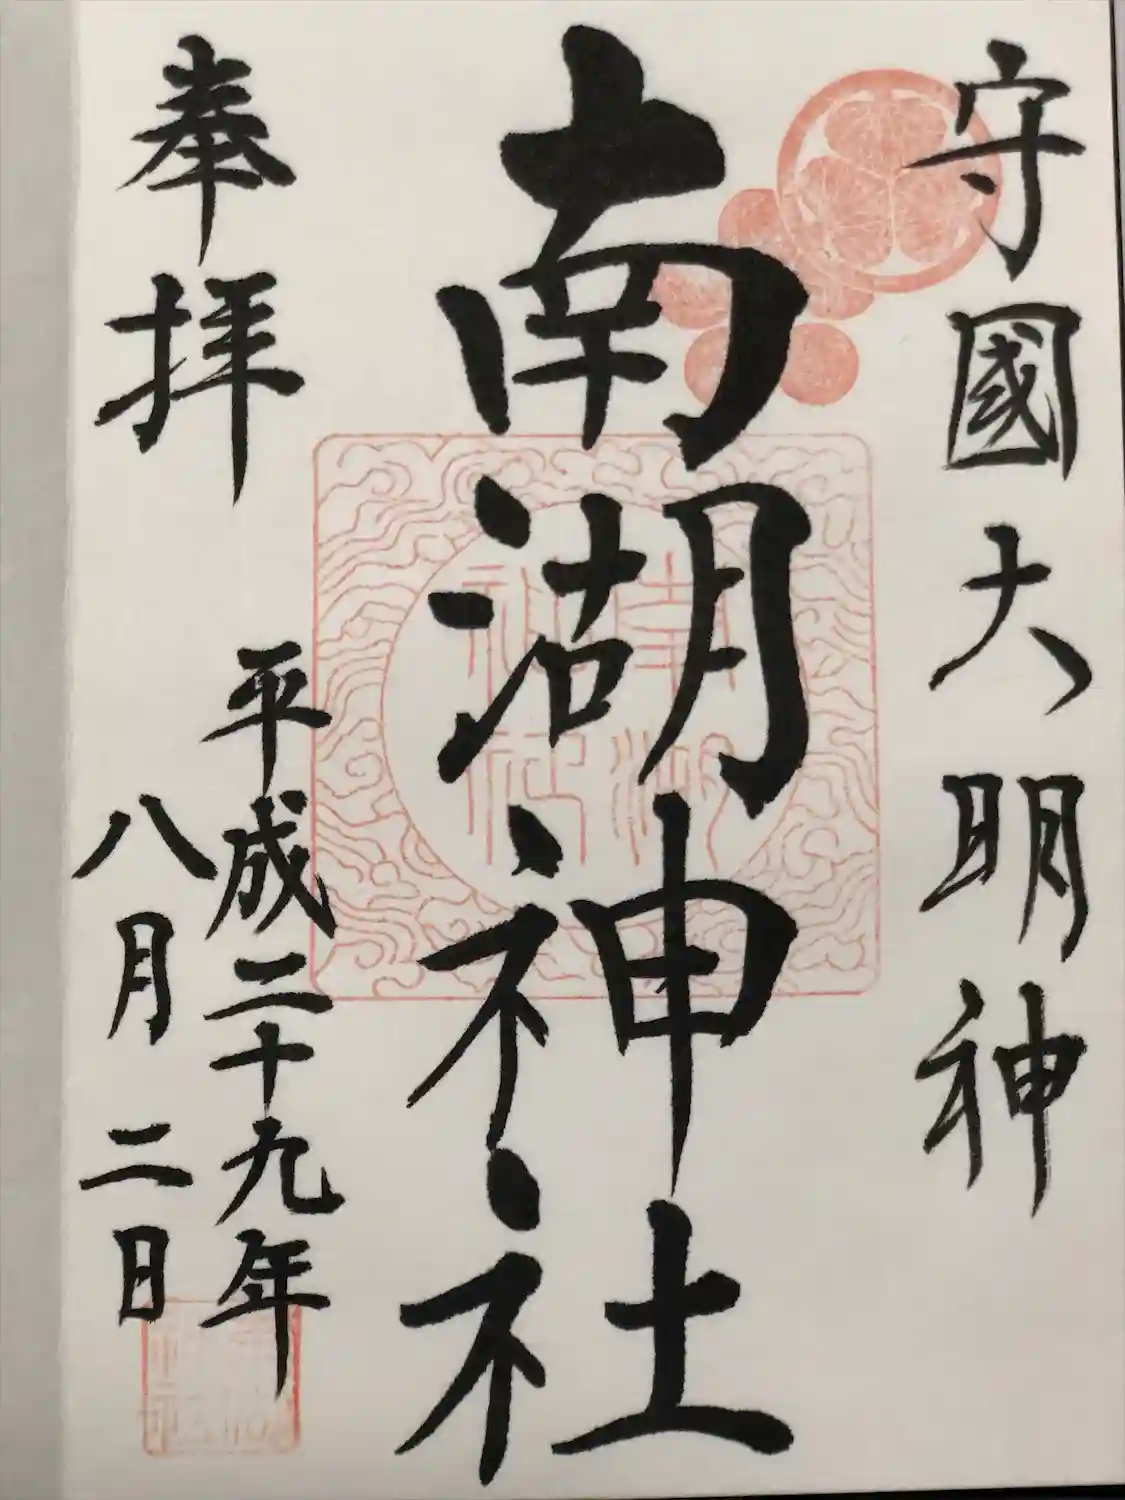 守國大明神
南湖神社
奉拝
平成二十九年
八月二日
南湖
神社